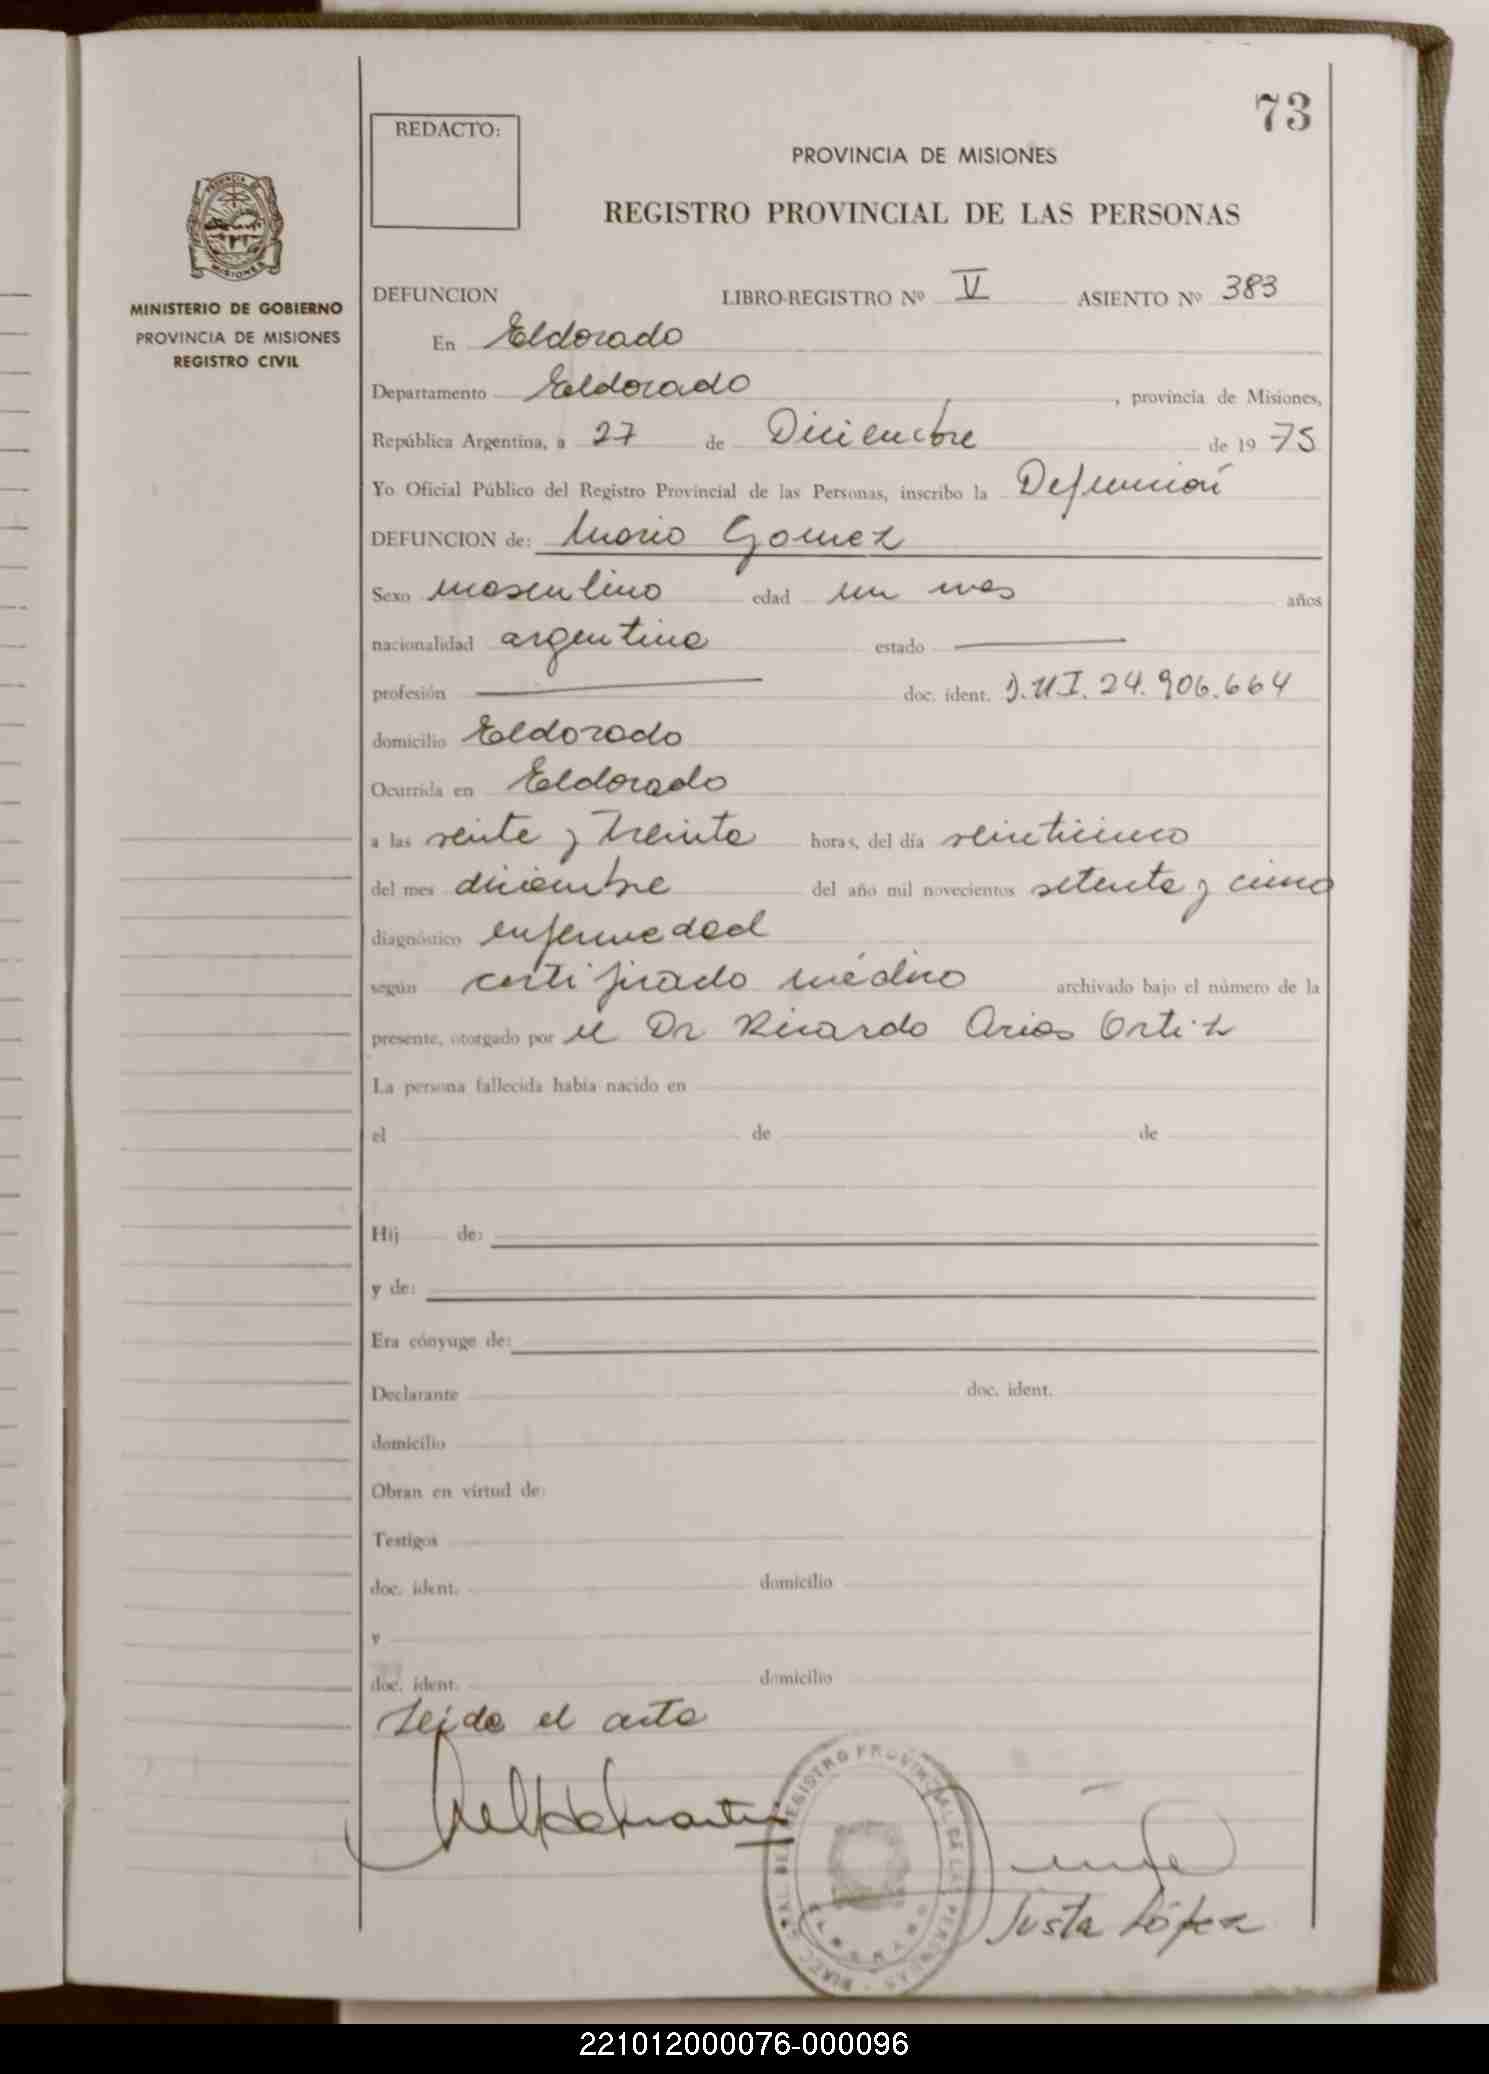 73
REDACTO:
PROVINCIA DE MISIONES
REGISTRO PROVINCIAL DE LAS PERSONAS
PROVINCIA DE MISIONES
MINISTERIO DE GOBIERNO
PROVINCIA DE MISIONES
REGISTRO CIVIL
DEFUNCION LIBRO-REGISTRO Nº V ASIENTO Nº 383
En Eldorado
Departamento Eldorado, provincia de Misiones,
República Argentina, a 27 de Diciembre de 1975
Yo Oficial Público del Registro Provincial de las Personas, inscribo la Defunción
DEFUNCION de: Mario Gomez
Sexo masculino edad un mes años
nacionalidad argentina estado
profesión doc. ident. D.N.I. 24.906.664
domicilio Eldorado
Ocurrida en Eldorado
a las veinte y treinta horas, del día veinticinco
del mes diciembre del año mil novecientos setenta y cinco
diagnóstico enfermedad
según certificado médico archivado bajo el número de la
presente, otorgado por el Dr Ricardo Arias Ortiz
La persona fallecida había nacido en
el de de
Hij de:
y de:
Era cónyuge de:
Declarante doc. ident.
domicilio
Obran en virtud de:
Testigos
doc. ident. domicilio
y
doc. ident. domicilio
Leida el acta
REGISTRO PROVINCIAL DE LAS PERSONAS
Justa López
221012000076-000096